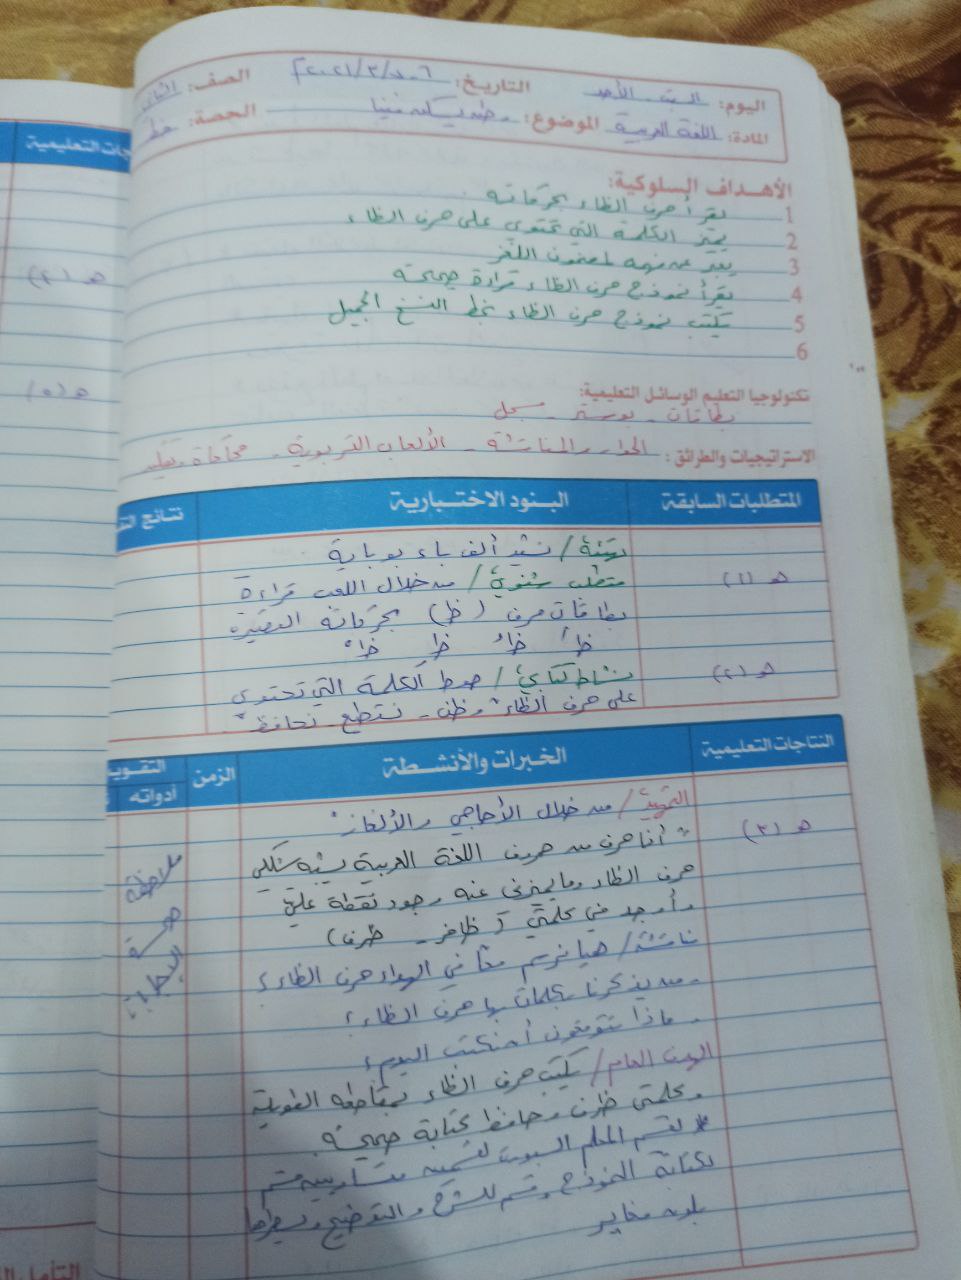 اليوم: السبت - الأحد التاريخ: الصف: الثاني
المادة: اللغة العربية الموضوع: الحصة: خط
الأهداف السلوكية:
1 يقرأ حرف الظاء بحركاته
2 يميز الكلمة التي تحتوي على حرف الظاء
3 يعبر عن فهمه لمضمون اللغز
4 يقرأ نموذج حرف الظاء قراءة صحيحة
5 يكتب نموذج حرف الظاء بخط النسخ الجميل
6
تكنولوجيا التعليم الوسائل التعليمية:
بطاقات - بوستر - مسجل
الاستراتيجيات والطرائق: الحوار والمناقشة - الألعاب التربوية - محاكاة وتقليد
المتطلبات السابقة البنود الاختبارية نتائج
تهيئة / نشيد ألف باء بوباية
هـ (١) متطلب شفوي / من خلال اللعب قراءة
بطاقات حرف (ظ) بحركاته القصيرة
ظَ ظُ ظِ ظْ
هـ (٢) نشاط كتابي / حوط الكلمة التي تحتوي
على حرف الظاء " وطن - نتطلع - نحافظ "
النتاجات التعليمية الخبرات والأنشطة الزمن التقويم
أدواته
التمهيد / من خلال الأحاجي والألغاز "
هـ (٣) " أنا حرف من حروف اللغة العربية يشبه شكلي
حرف الطاء وما يميزني عنه وجود نقطة علي
وأوجد في كلمتي ( ظافر - ظرف )
مناقشة / هيا نرسم معاً في الهواء حرف الظاء ؟
- من يذكرنا بكلمات بها حرف الظاء ؟
- ماذا تتوقعون أن نكتب اليوم ؟
الهدف العام / يكتب حرف الظاء بمقاطعه الطويلة
وكلمتي ظرف وحافظ كتابة صحيحة .
* تقسم المعلم السبورة لقسمين متساويين قسم
لكتابة النموذج وقسم للشرح والتوضيح وتسطرها
بلون مغاير
ملاحظة
صحة
جات التعليمية
هـ (٢)
هـ (٥)